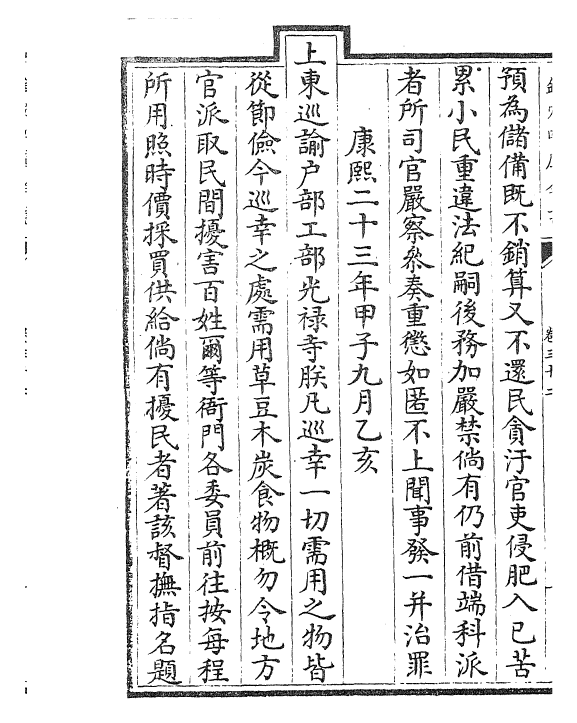 預為儲備既不銷算又不還民貪汙官吏侵肥入已苦
累小民重違法紀嗣後務加嚴禁倘有仍前借端科派
者所司官嚴察叅奏重懲如匿不上聞事發一并治罪
康熙二十三年甲子九月乙亥
上東巡諭户部工部光禄寺朕凡巡幸一切需用之物皆
從節儉今巡幸之處需用草豆木炭食物概勿令地方
官派取民間擾害百姓爾等衙門各委員前往按每程
所用照時價採買供給倘有擾民者著該督撫指名題